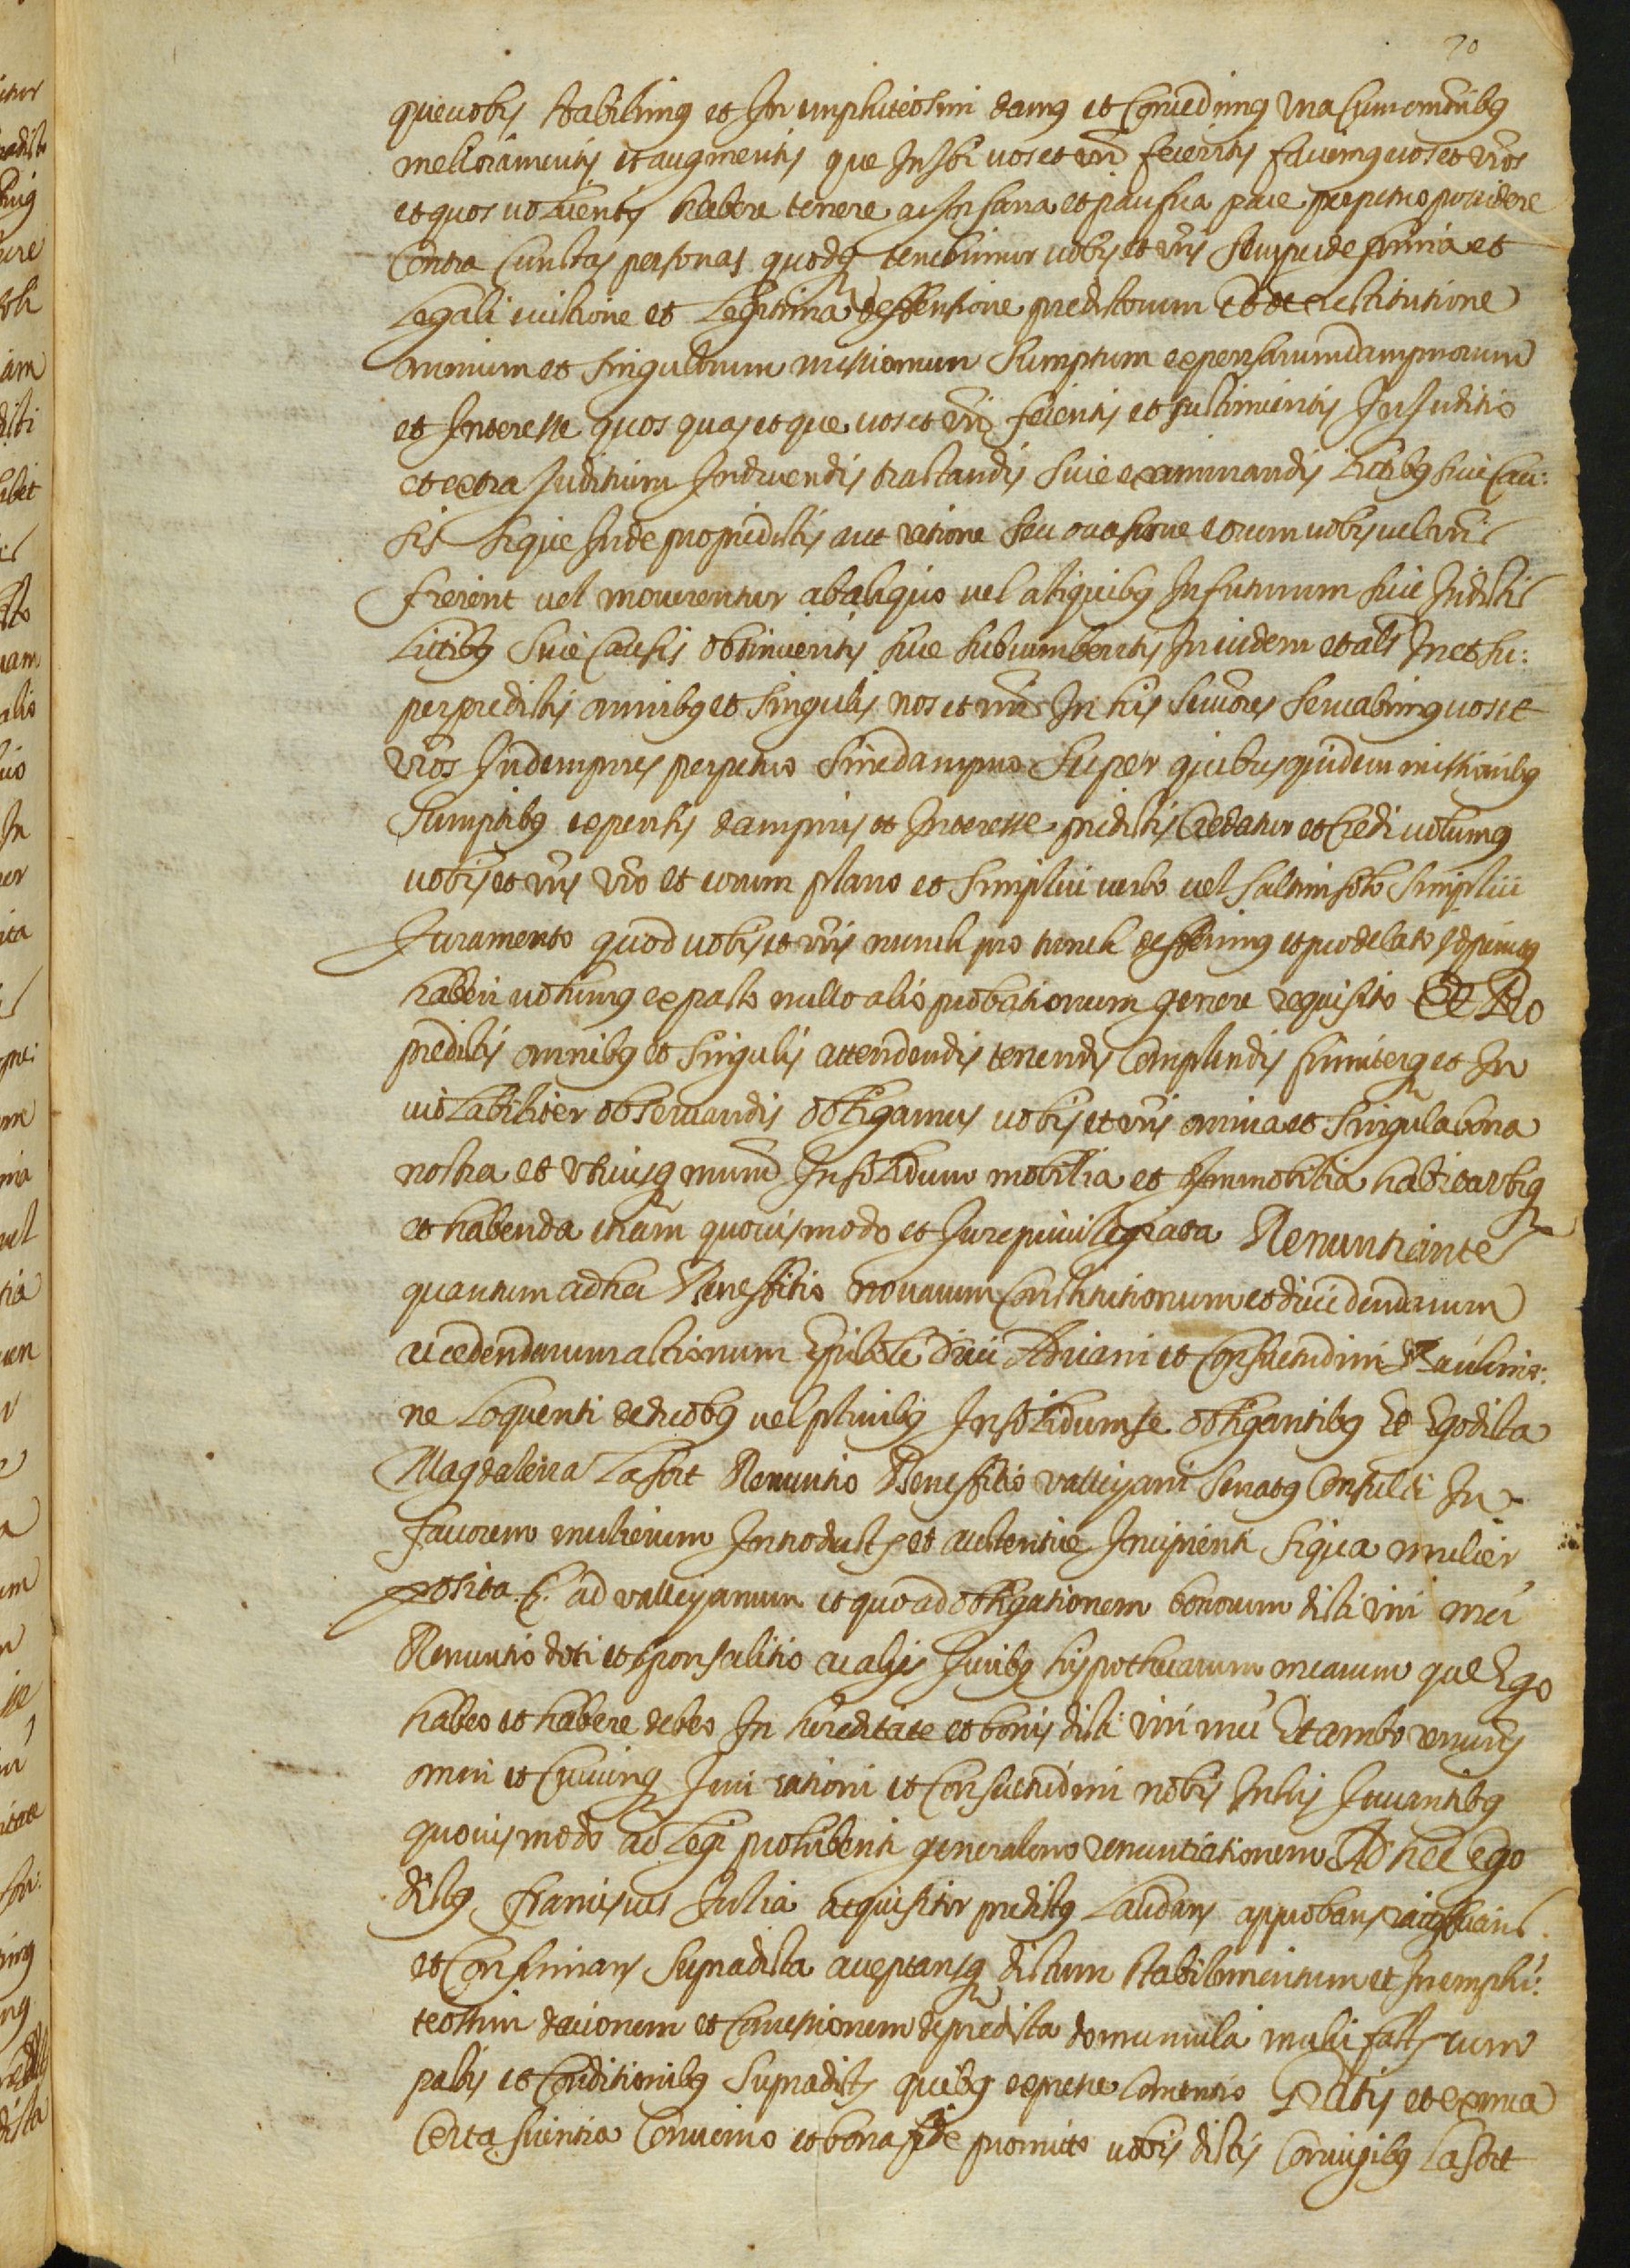 70
que uobis stabilimus et In emphiteosim damus et Concedimus Vna Cum omnibus
mellioramentis et augmentis que In Ibi uos et vri feceritis facimus uos et vros
et quos uolueritis habere tenere ac In sana et paciffica pace perpetuo possidere
Contra Cunctas personas quodq tenebimur uobis et vris semper de firma et
Legali euictione et Legitima deffentione predictorum Et de restitutione
omnium et singulorum missionum sumptuum expensarum dampnorum
et Interesse quos quas et que uos et vri feceritis et sustinueritis In Juditio
et extra Juditium Inducendis tractandis siue examinandis Litibus siue Cau:
sis sique Inde pro predictis aut ratione seu occasione eorum uobis uel vris
fierent uel mouerentur ab aliquo uel aliquibus In futurum siue In dictis
Litibus siue Causis obtinueritis siue subcumberitis In eisdem et als In et su:
per predictis omnibus et singulis nos et nri In his succores seruabimus uos et
vros Indempnes perpetuo sine dampno super quibus quidem missionibus
sumptibus expensis dampnis et Interesse predictis Credatur et Credi uolumus
uobis et vris vro et eorum plano et simplici uerbo uel saltim solo simplici
Juramento quod uobis et vris nunch pro tunch defferimus et pro delato et
haberi uolumus ex pacto nullo alio probationum genere requisito Et Pro
predictis omnibus et singulis attendendis tenendis Complendis firmiterq et In
uiolabiliter obseruandis obligamus uobis et vris omnia et singula bona
nostra et vtriusq nrum In solidum mobilia et Immobilia habita vbiq
et habenda etiam quouis modo et Jure priuilegiata Renuntiantes
quantum ad hec Beneffitio nouarum Constitutionum et diuidendarum
ac cedendarum actionum Epistole diui Adriani et Consuetudini Barcinno:
ne Loquenti de duobus uel pluribus In solidum se obligantibus Et Ego dicta
Magdalena Lafort Renuntio Beneffitio valleyani senatus Consulti In
fauorem mulierum Introducto et autentice Incipienti siqua mulier
posita C. ad valleyanum et quo ad obligationem bonorum dicti viri mei
Renuntio doti et sponsalitio ac aliis Juribus hispothecarum mearum que Ego
habeo et habere debeo In hereditate et bonis dicti viri mei Et ambo
omni et Cuicunq Juri rationi et Consuetudini nobis In his Juuantibus
quouis modo ac Legi prohibenti generalem renuntiationem Ad hec ego
dictus franciscus Julia acquisitor predictus Laudans approbans ratifficans
et Confirmans supradicta acceptansq dictum stabilimentum et In emphi:
teosim dacionem et Concessionem de predicta domuncula michi facts cum
pactis et Conditionibus supradictis quibus expresse Consentio Gratis et ex mea
Certa scientia Conuenio et bona fide promitto uobis dictis Coniugibus Lafort